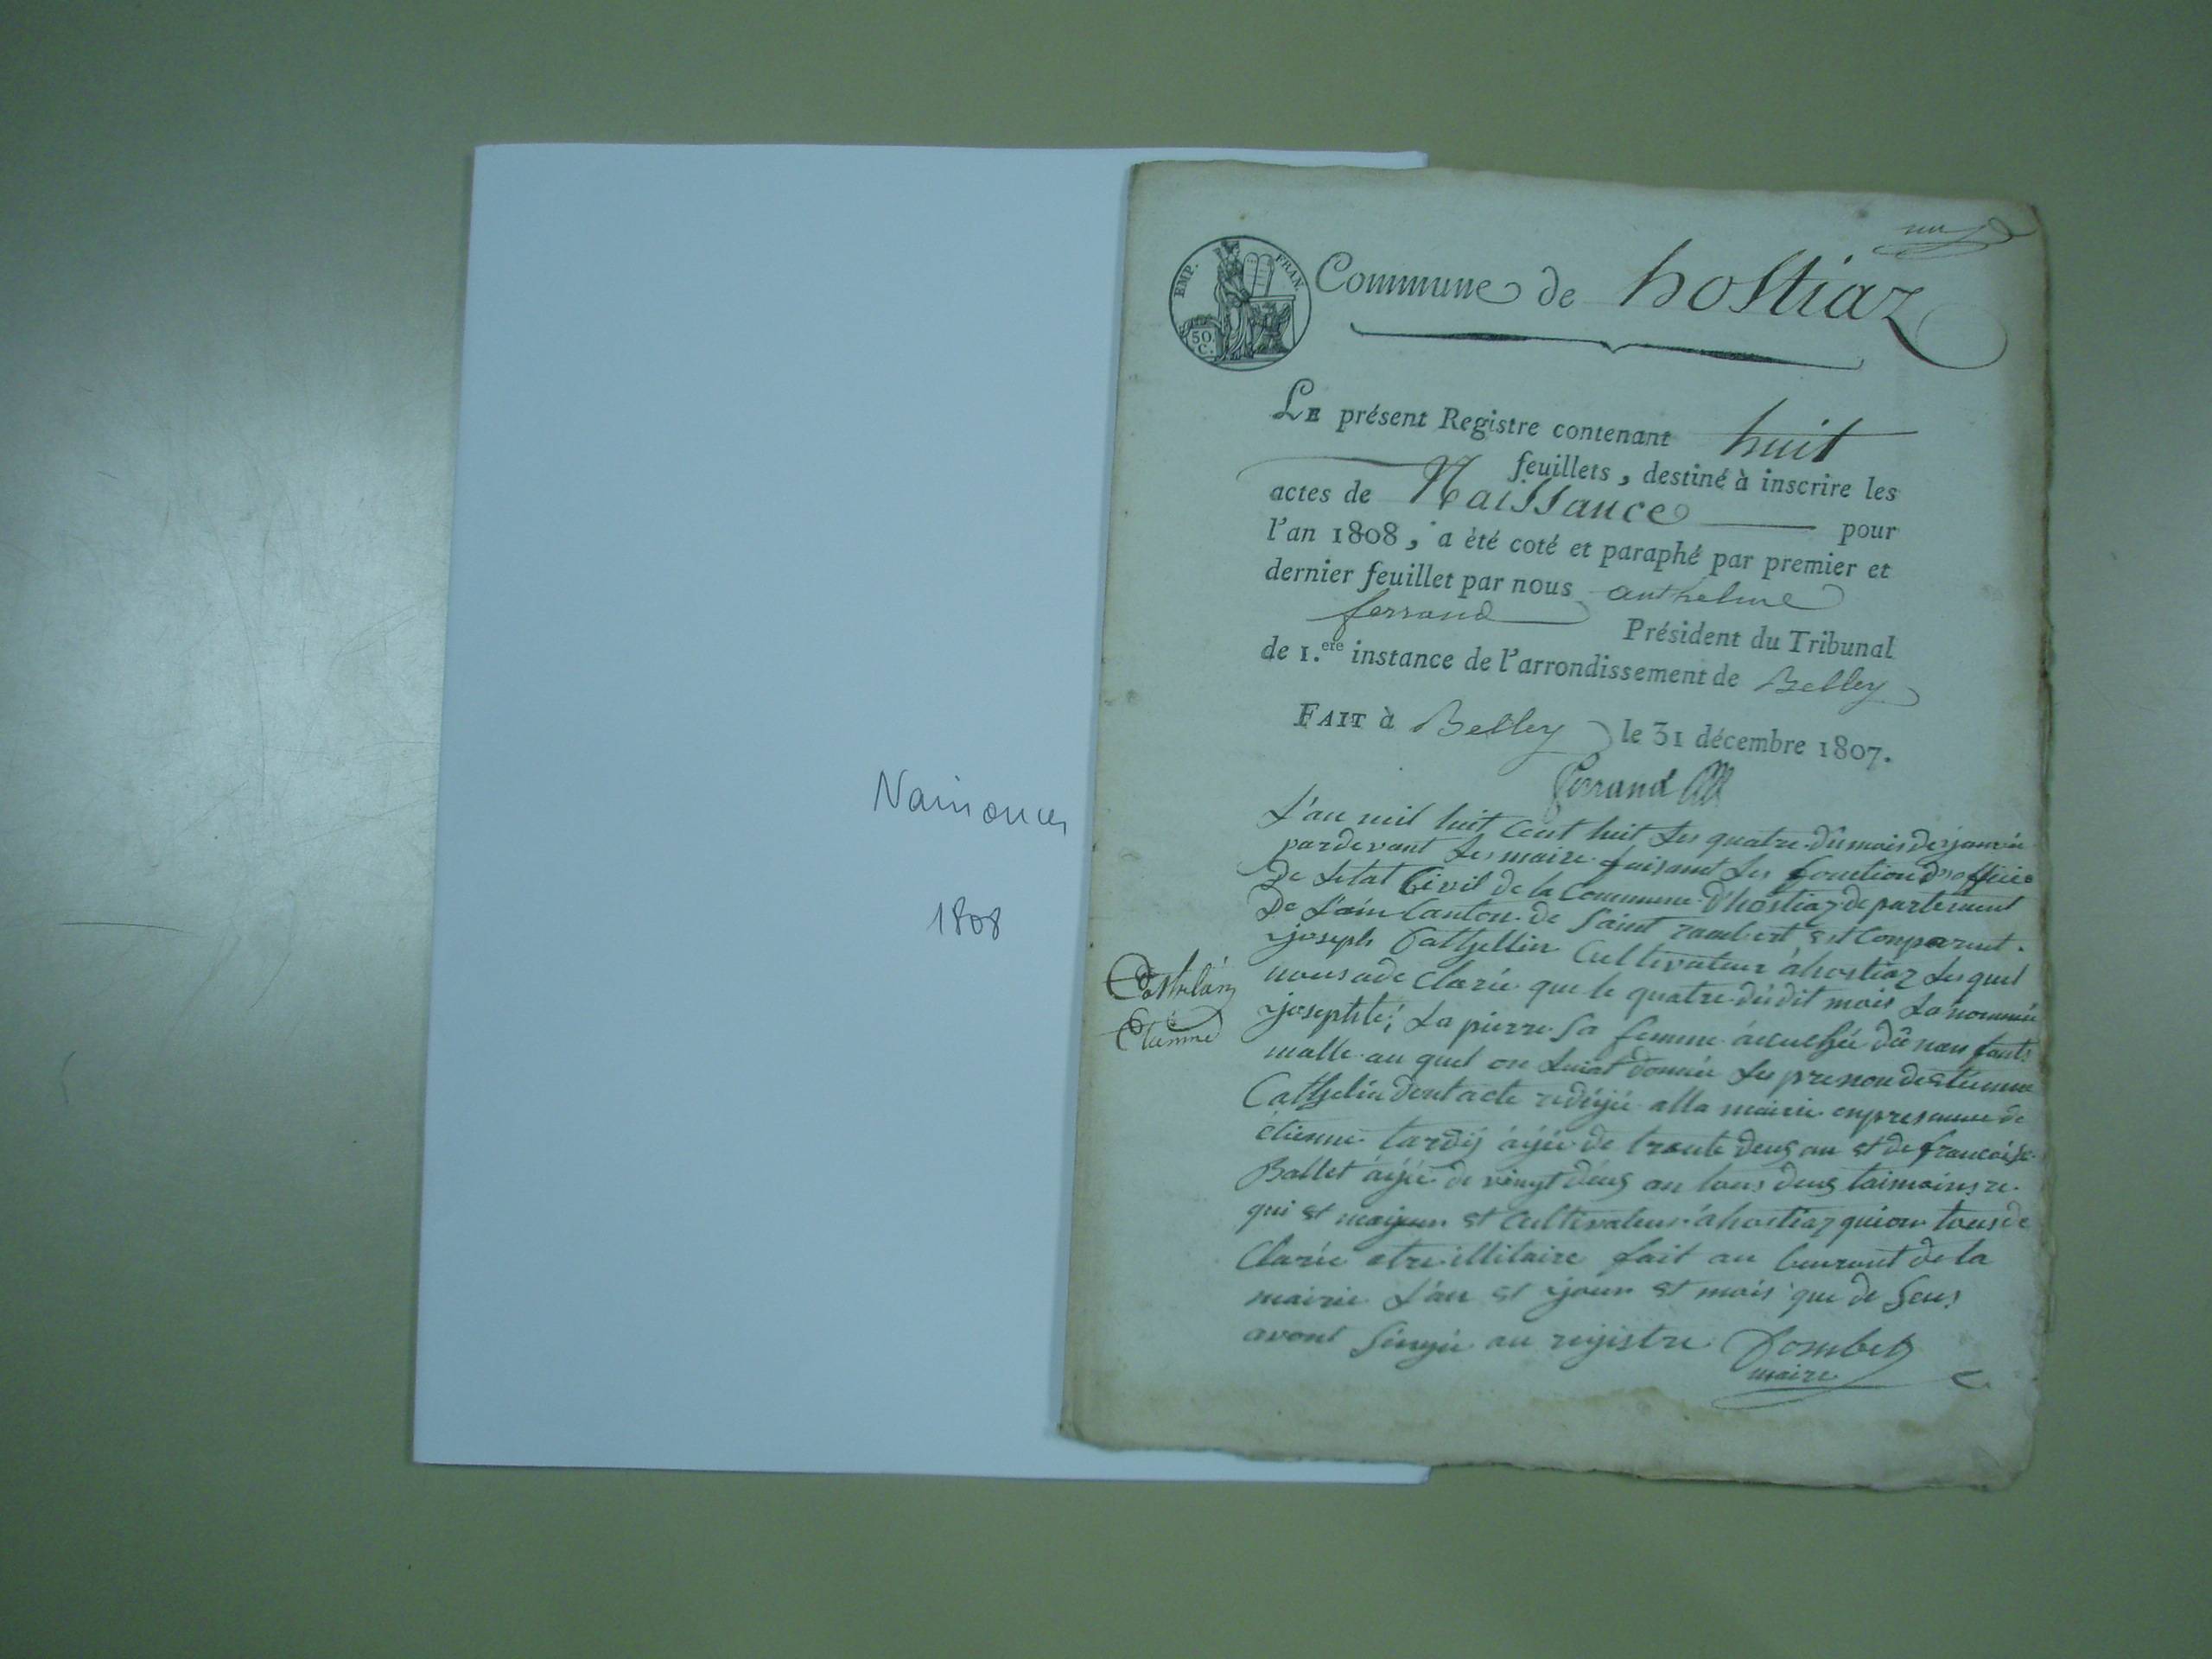 Naissances
1808
un
EMP. FRAN.
50.
C.
Commune de hostiaz
LE présent Registre contenant huit
feuillets, destiné à inscrire les
actes de Naissance pour
l'an 1808, a été coté et paraphé par premier et
dernier feuillet par nous anthelme
ferrand Président du Tribunal
de 1.ere instance de l'arrondissement de Belley
FAIT à Belley le 31 décembre 1807.
Ferrand
L'an mil huit cent huit les quatre du mois de janvie
pardevant les maire faisant les fonction d'officie
De letat Civil de la Commune d'hostiaz departement
De L'ain Canton de Saint rambert est Comparut
joseph Cathellin Cultivateur a hostiaz lesquel
nous a de clarée que le quatre du dit mois La nommée
josephte La pierre sa femme acuchée du nan fants
malle au quel on luiat donnée les prenon destienne
Cathelin dont acte redijée alla mairie en presance de
étienne tardij ajée de trante deus an et de francoise
Ballet ajée de vingt deus an tous deus taimoins re
qui et majeur et Cultivateur a hostiaz qui on tous de
Clarée etre illitaire fait au bureaut de la
mairie L'an et jour et mois que de seus
avont singée au rejistre Jombet
maire
Cathelin
Etienne